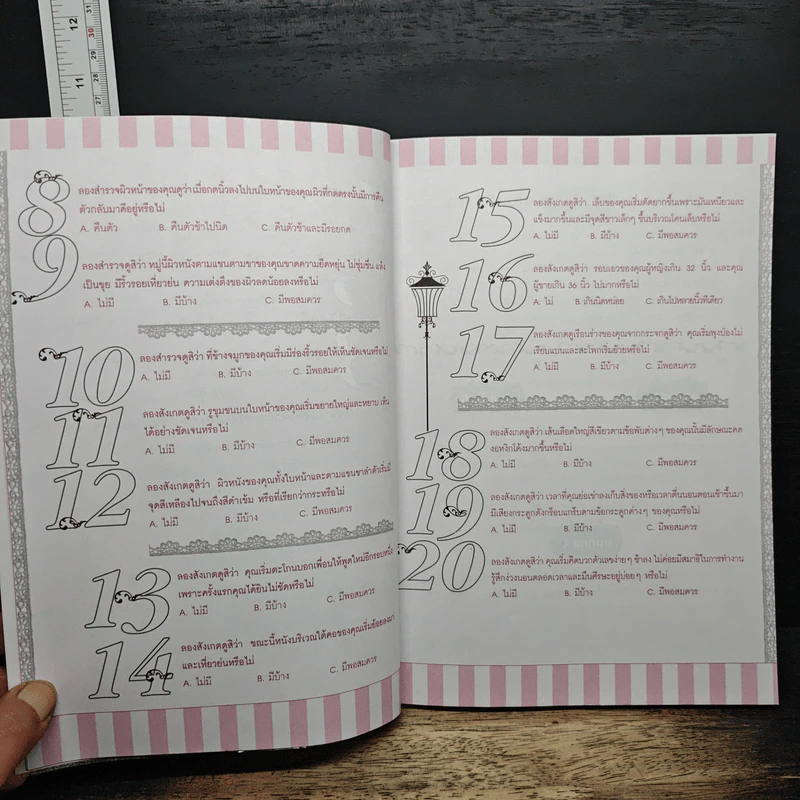 12
11
31
30
29
28
27
8
ลองสำรวจผิวหน้าของคุณดูว่าเมื่อกดนิ้วลงไปบนใบหน้าของคุณผิวที่กดตรงนั้นมีการคืน
ตัวกลับมาดีอยู่หรือไม่
A. คืนตัว B. คืนตัวช้าไปนิด C. คืนตัวช้าและมีรอยกด
9
ลองสำรวจดูสิว่า หมู่นี้ผิวหนังตามแขนตามขาของคุณขาดความยืดหยุ่น ไม่ชุ่มชื้น แห้ง
เป็นขุย มีริ้วรอยเหี่ยวย่น ความเต่งตึงของผิวลดน้อยลงหรือไม่
A. ไม่มี B. มีบ้าง C. มีพอสมควร
10
ลองสำรวจดูสิว่า ที่ข้างจมูกของคุณเริ่มมีร่องริ้วรอยให้เห็นชัดเจนหรือไม่
A. ไม่มี B. มีบ้าง C. มีพอสมควร
11
ลองสังเกตดูสิว่า รูขุมขนบนใบหน้าของคุณเริ่มขยายใหญ่และหยาบ เห็น
ได้อย่างชัดเจนหรือไม่
A. ไม่มี B. มีบ้าง C. มีพอสมควร
12
ลองสังเกตดูสิว่า ผิวหนังของคุณทั้งใบหน้าและตามแขนขาลำตัวเริ่มมี
จุดสีเหลืองไปจนถึงสีดำเข้ม หรือที่เรียกว่ากระหรือไม่
A. ไม่มี B. มีบ้าง C. มีพอสมควร
13
ลองสังเกตดูสิว่า คุณเริ่มตะโกนบอกเพื่อนให้พูดใหม่อีกรอบหนึ่ง
เพราะครั้งแรกคุณได้ยินไม่ชัดหรือไม่
A. ไม่มี B. มีบ้าง C. มีพอสมควร
14
ลองสังเกตดูสิว่า ขณะนี้หนังบริเวณใต้คอของคุณเริ่มย้อยลงมา
และเหี่ยวย่นหรือไม่
A. ไม่มี B. มีบ้าง C. มีพอสมควร
15
ลองสังเกตดูสิว่า เล็บของคุณเริ่มตัดยากขึ้นเพราะมันเหนียวและ
แข็งมากขึ้นและมีจุดสีขาวเล็กๆ ขึ้นบริเวณโคนเล็บหรือไม่
A. ไม่มี B. มีบ้าง C. มีพอสมควร
16
ลองสังเกตดูสิว่า รอบเอวของคุณผู้หญิงเกิน 32 นิ้ว และคุณ
ผู้ชายเกิน 36 นิ้ว ไปมากหรือไม่
A. ไม่ B. เกินนิดหน่อย C. เกินไปหลายนิ้วทีเดียว
17
ลองสังเกตดูเรือนร่างของคุณจากกระจกดูสิว่า คุณเริ่มพุงป่องไม่
เรียบแบนและสะโพกเริ่มย้วยหรือไม่
A. ไม่มี B. มีบ้าง C. มีพอสมควร
18
ลองสังเกตดูสิว่า เส้นเลือดใหญ่สีเขียวตามข้อพับต่างๆ ของคุณนั้นมีลักษณะคด
งอหงิกโค้งมากขึ้นหรือไม่
A. ไม่มี B. มีบ้าง C. มีพอสมควร
19
ลองสังเกตดูสิว่า เวลาที่คุณย่อเข่าลงเก็บสิ่งของหรือเวลาตื่นนอนตอนเช้าขึ้นมา
มีเสียงกระดูกดังกร๊อบแกร๊บตามข้อกระดูกต่างๆ ของคุณหรือไม่
A. ไม่มี B. มีบ้าง C. มีพอสมควร
20
ลองสังเกตดูสิว่า คุณเริ่มคิดบวกตัวเลขง่ายๆ ช้าลง ไม่ค่อยมีสมาธิในการทำงาน
รู้สึกง่วงนอนตลอดเวลาและมึนศีรษะอยู่บ่อยๆ หรือไม่
A. ไม่มี B. มีบ้าง C. มีพอสมควร